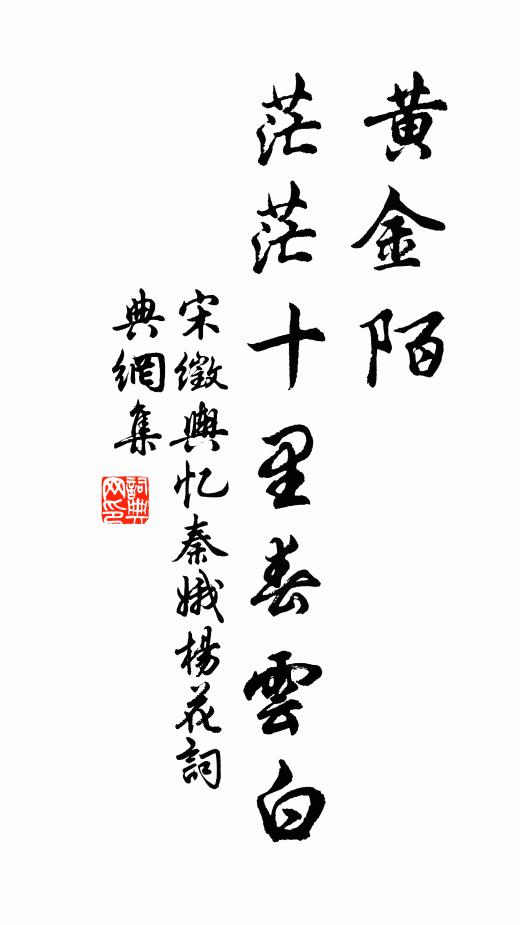 黄金陌
茫茫十里春雲白
宋徵輿忆秦娥楊花詞
典網集
詞典网印